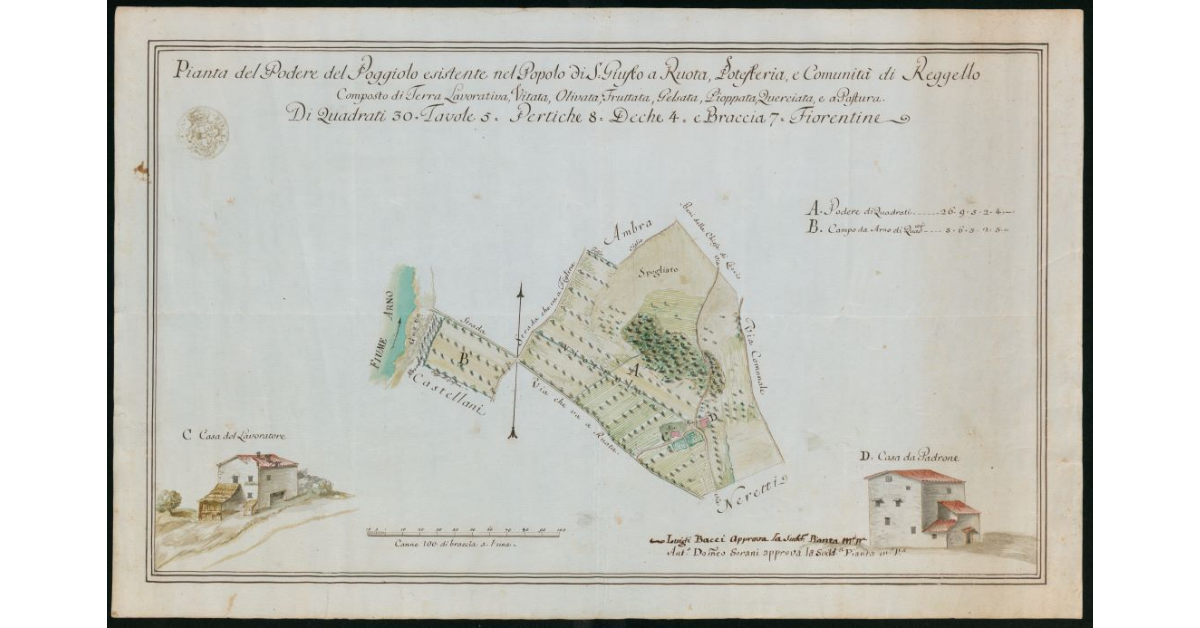 Pianta del Podere del Poggiolo esistente nel Popolo di S. Giusto a Ruota, Potesteria, e Comunità di Reggello
Composto di Terra Lavorativa, Vitata, Olivata, Fruttata, Gelsata, Pioppata, Querciata, e a Pastura.
Di Quadrati 30. Tavole 5. Pertiche 8. Deche 4. e Braccia 7. Fiorentine
A. Podere di Quadrati 26. 9. 5. 2. 4.
B. Campo da Arno di
Ambra
Beni della Chiesa di
Spogliato
Strada che va a Figline
Via Comunale
FIUME ARNO
Strada
B
A
Castellani
Via che va a Ruota
C
D
de Neretti
C. Casa del Lavoratore
D. Casa da Padrone
Canne 100 di braccia 5. l'una.
Luigi Bacci Approva la Sudd.ª Pianta
Ant.º Dom.co approva la Sudd.ª Pianta